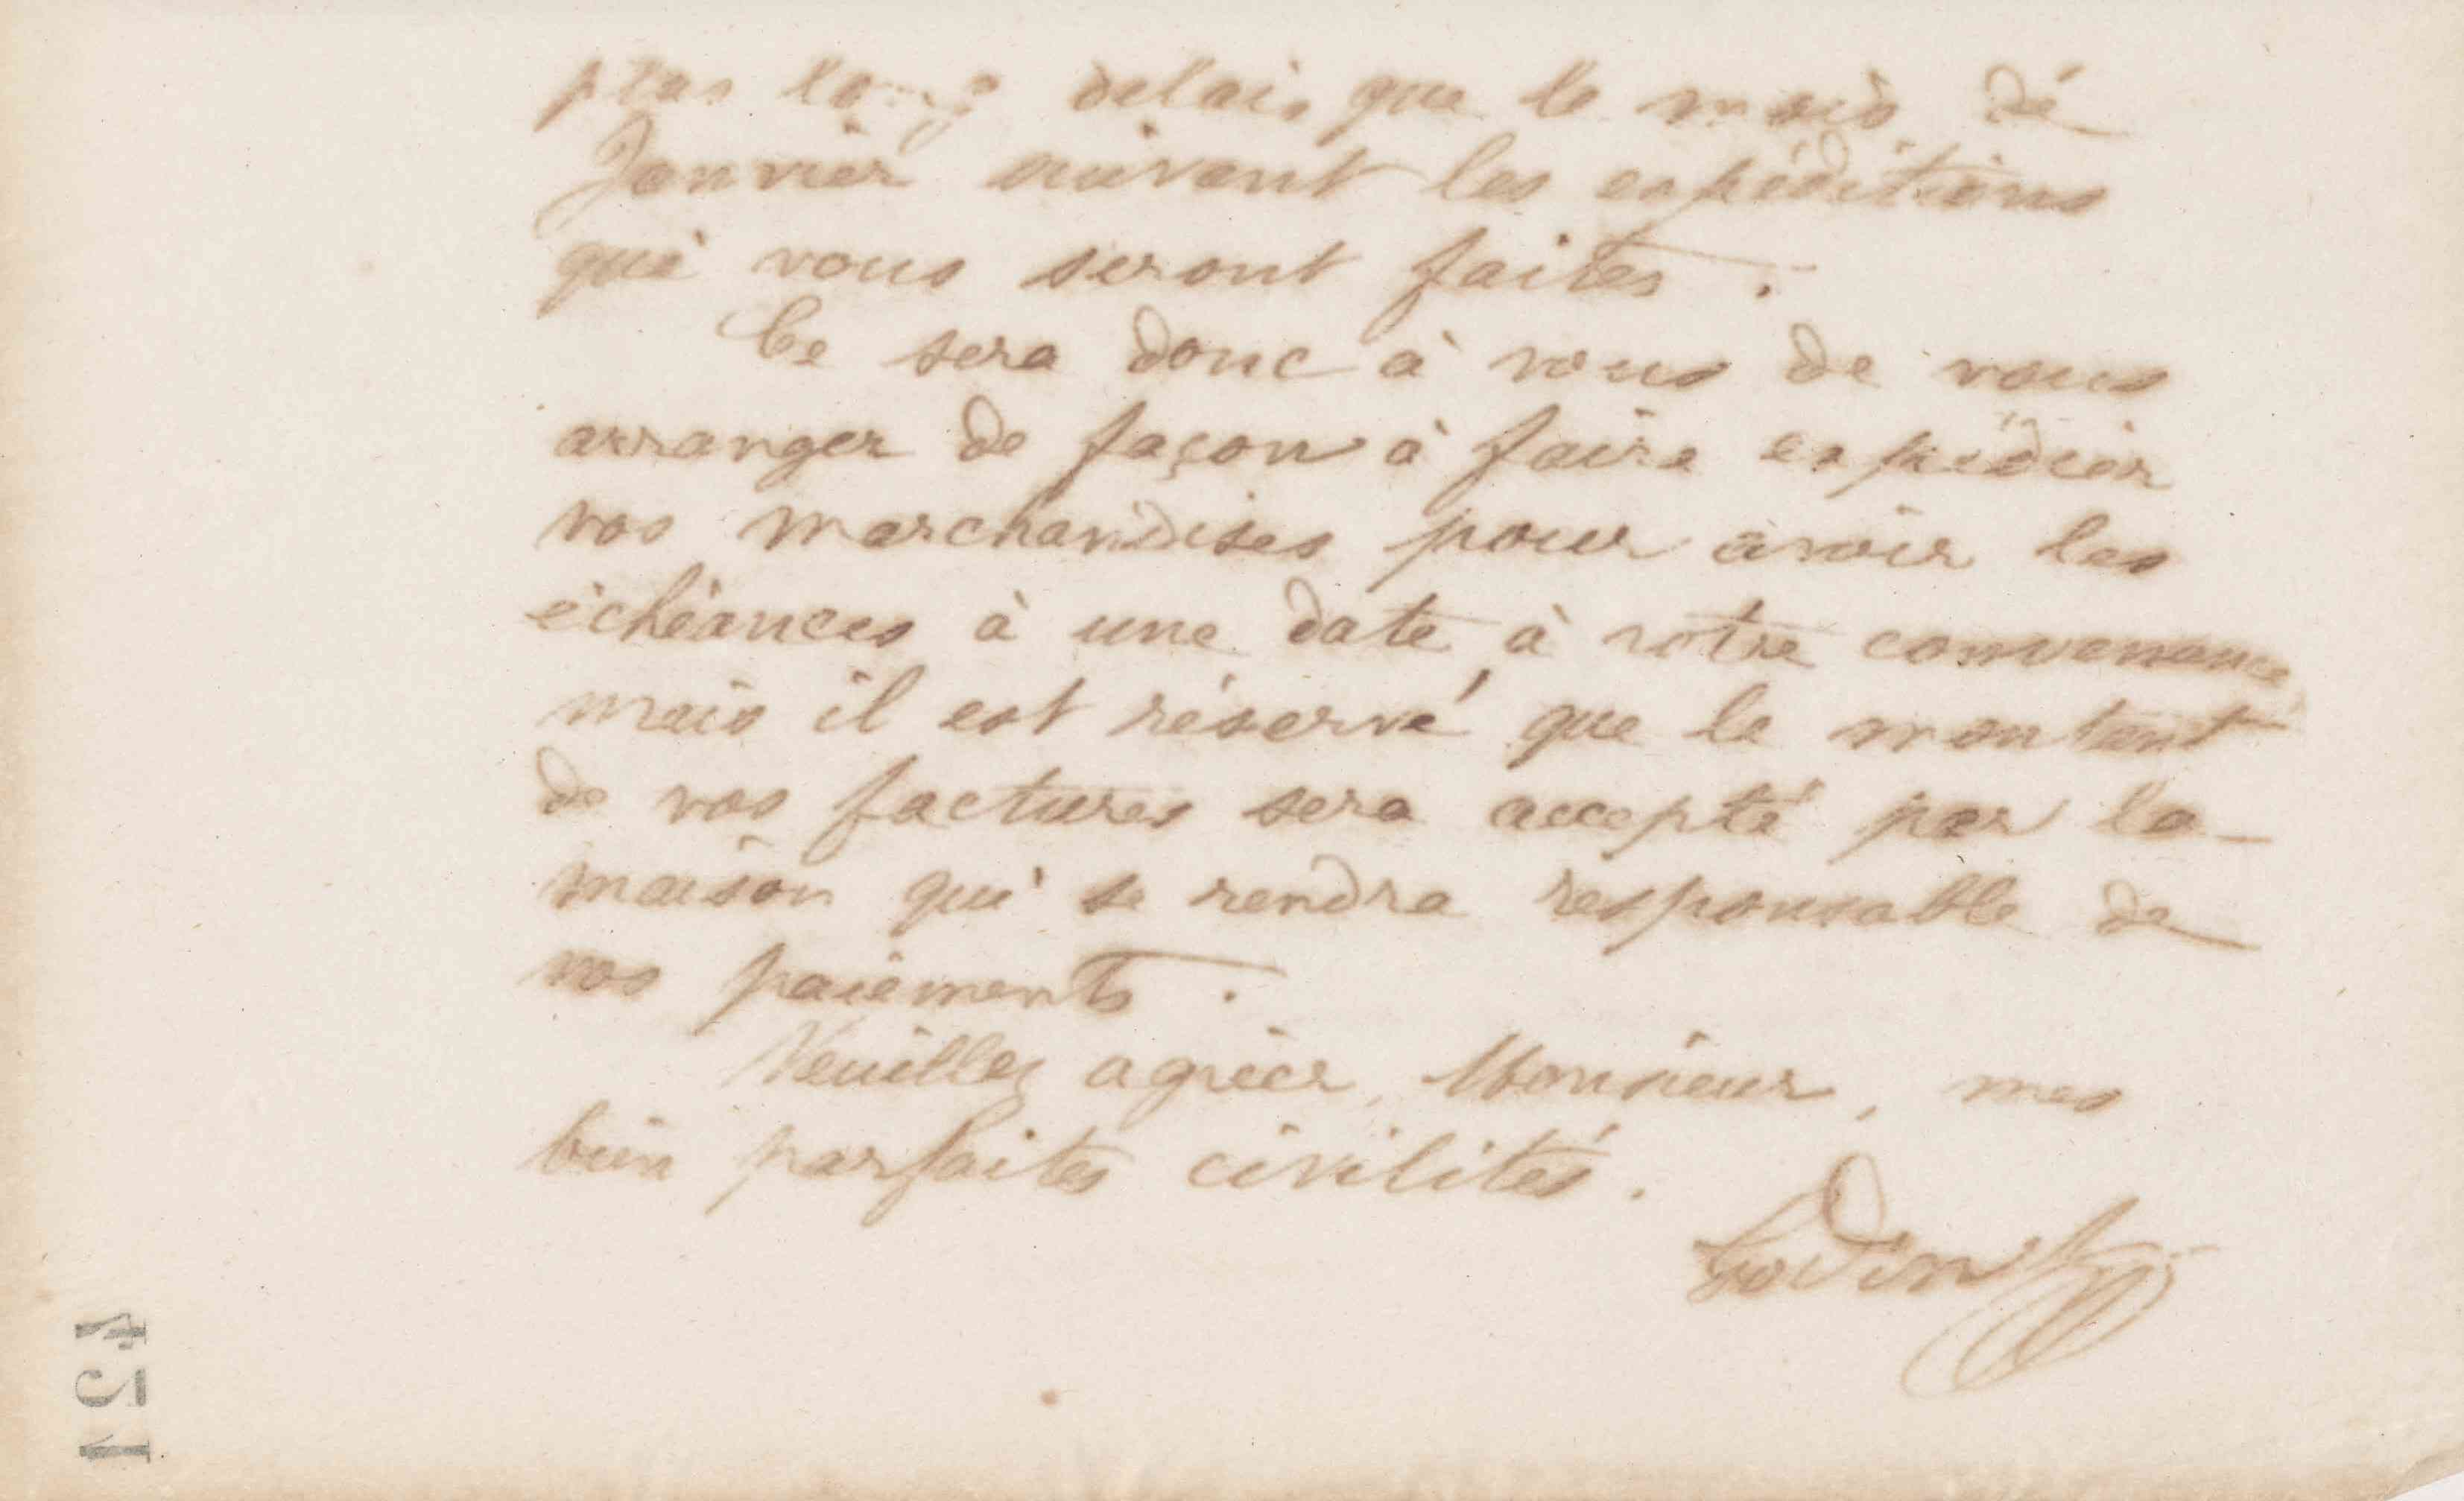 plus long delais que le mois de
Janvier suivant les expéditions
qui vous seront faites.
Ce sera donc à vous de vous
arranger de façon à faire expédier
vos marchandises pour avoir les
échéances à une date à votre convenance,
mais il est réservé que le montant
de vos factures sera accepté par la
maison qui se rendra responsable de
vos paiements.
Veuillez agréer, Monsieur, mes
bien parfaites civilités.
Godin
421